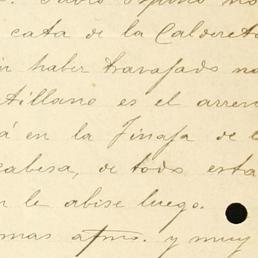 cata de la Caldereta
haber travajado no
tillano es el arren
á en la Tinaja de l
cabesa, de todo esta
le abise luego.
mas atmo. y muy